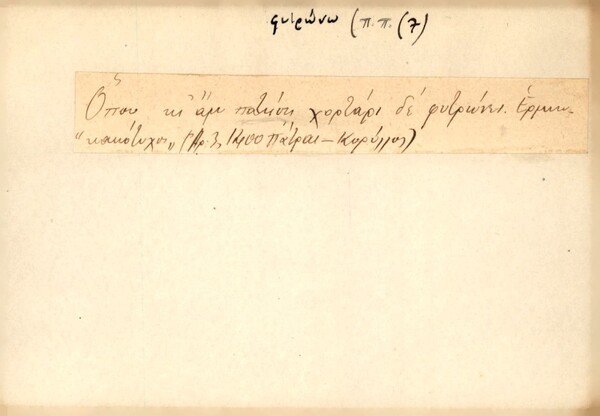 φυτρώνω (π.π. (7)
Ὅπου κι' ἂν πατήσῃ χορτάρι δέ φυτρώνει. Ἑρμην.
"κακότυχος" (Ἀρ. 3, 1400 Πάτραι – Κορύλλος)